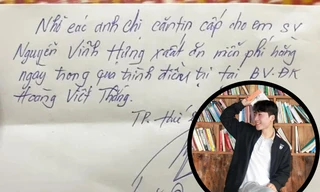 Nhờ các anh chị căntin cấp cho em SV
Nguyễn Vĩnh Hưng xuất ăn miễn phí hằng
ngày trong quá trình điều trị tại BV-ĐK
Hoàng Viết Thắng.
TP. Huế